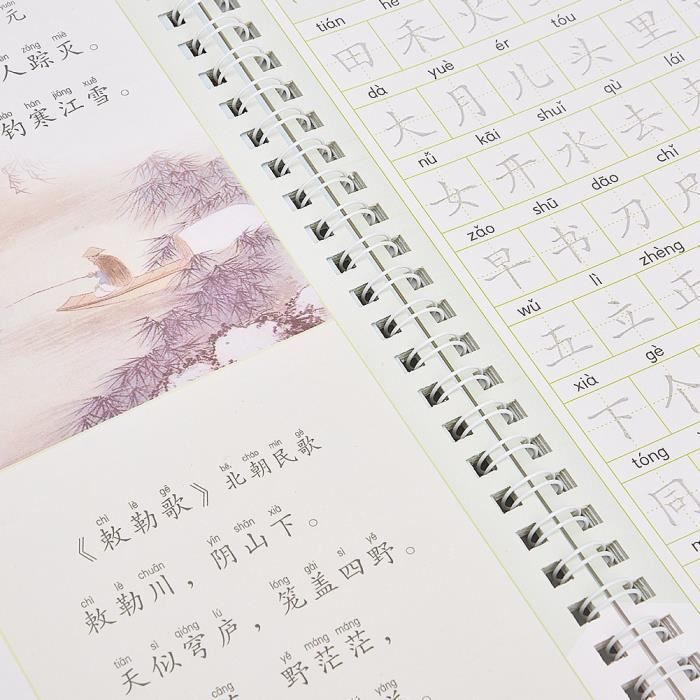 yuán
元
zōng miè
人踪灭。
hán jiāng xuě
钓寒江雪。
chì lè gē běi cháo mín gē
《敕勒歌》北朝民歌
chì lè chuān yīn shān xià
敕勒川，阴山下。
tiān sì qióng lú lóng gài sì yě
天似穹庐，笼盖四野。
cāng yě máng máng
野茫茫，
tián hé
田禾火
yuè ér tóu
dà
大月儿头里
kāi shuǐ qù lái
nǚ
女开水去来
zǎo shū dāo chǐ
早书刀尺
wǔ lì zhèng
五立正
xià gè
下个
tóng
同